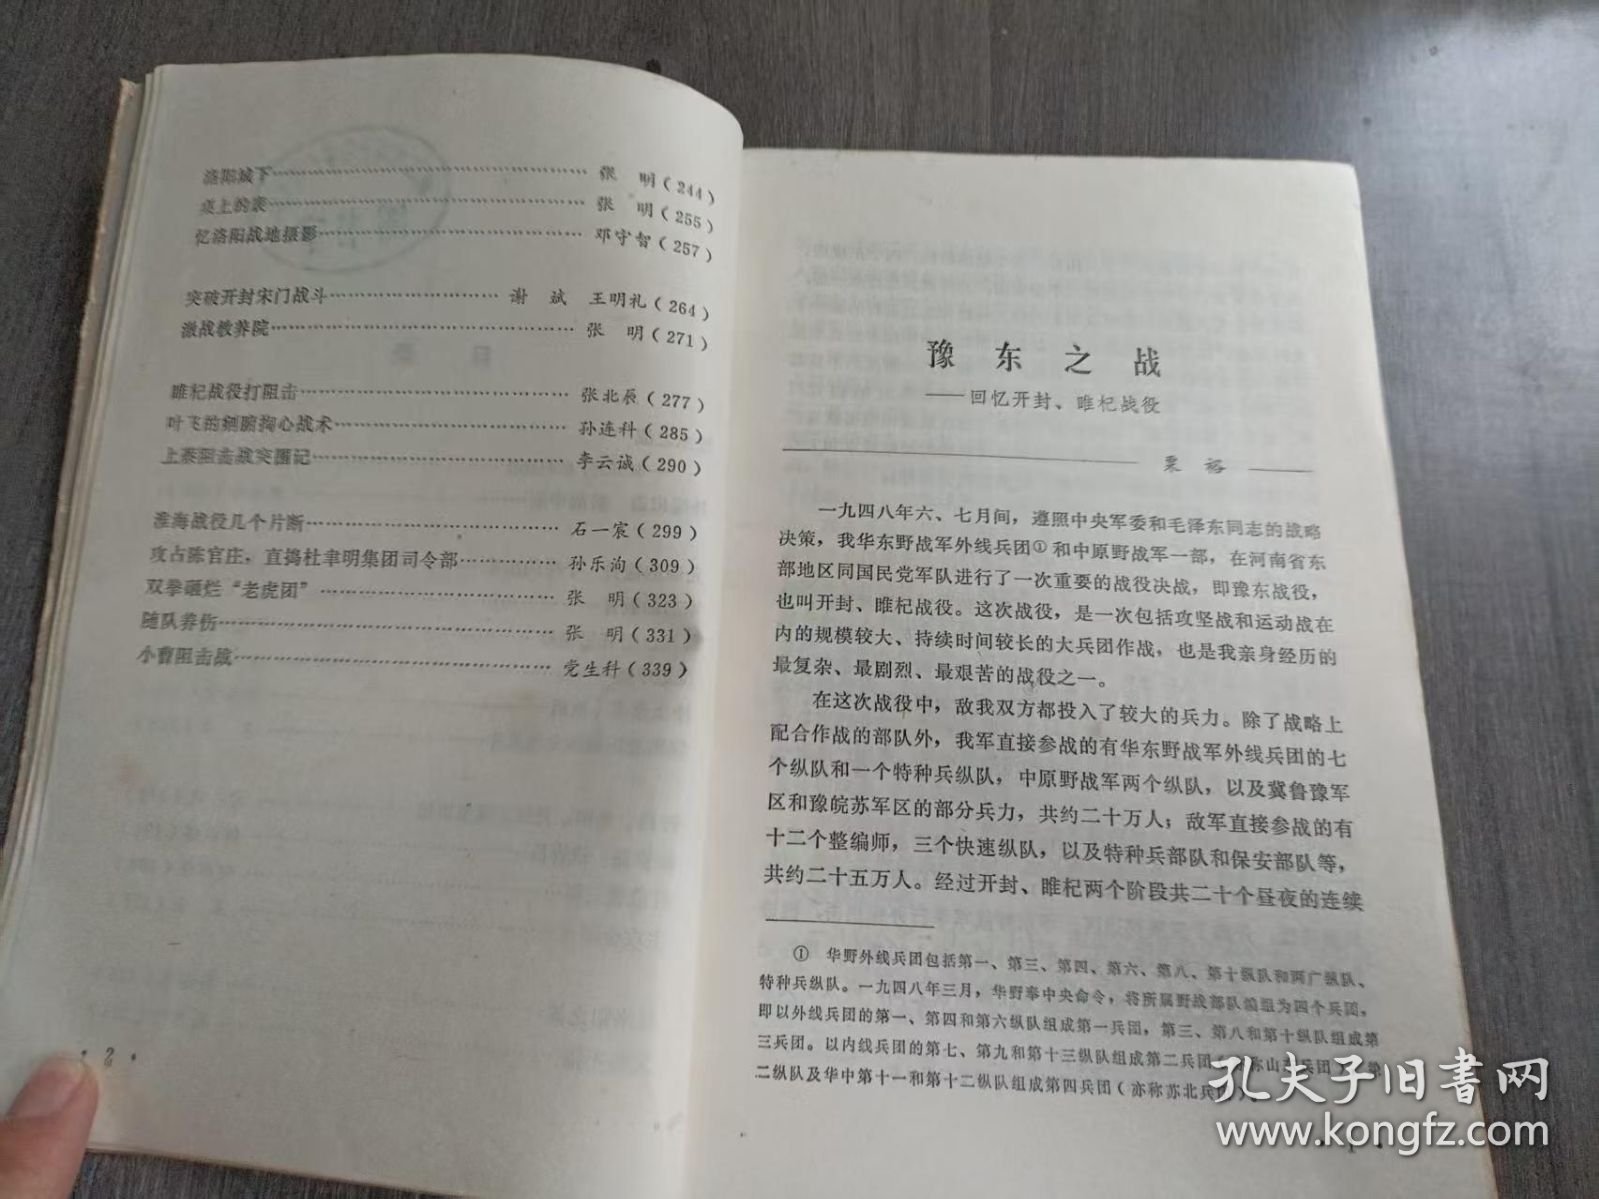 洛阳城下……张　明(244)
坡上的表……张　明(255)
忆洛阳战地摄影……邓守智(257)
突破开封宋门战斗……谢　斌　王明礼(264)
激战教养院……张　明(271)
睢杞战役打阻击……张北辰(277)
叶飞的剜腑掏心战术……孙连科(285)
上蔡阻击战突围记……李云诚(290)
淮海战役几个片断……石一宸(299)
攻占陈官庄，直捣杜聿明集团司令部……孙乐洵(309)
双拳砸烂“老虎团”……张　明(323)
随队养伤……张　明(331)
小曹阻击战……党生科(339)
·2·
豫东之战
——回忆开封、睢杞战役
粟　裕
一九四八年六、七月间，遵照中央军委和毛泽东同志的战略
决策，我华东野战军外线兵团①和中原野战军一部，在河南省东
部地区同国民党军队进行了一次重要的战役决战，即豫东战役，
也叫开封、睢杞战役。这次战役，是一次包括攻坚战和运动战在
内的规模较大、持续时间较长的大兵团作战，也是我亲身经历的
最复杂、最剧烈、最艰苦的战役之一。
在这次战役中，敌我双方都投入了较大的兵力。除了战略上
配合作战的部队外，我军直接参战的有华东野战军外线兵团的七
个纵队和一个特种兵纵队，中原野战军两个纵队，以及冀鲁豫军
区和豫皖苏军区的部分兵力，共约二十万人；敌军直接参战的有
十二个整编师，三个快速纵队，以及特种兵部队和保安部队等，
共约二十五万人。经过开封、睢杞两个阶段共二十个昼夜的连续
①　华野外线兵团包括第一、第三、第四、第六、第八、第十纵队和两广纵队、
特种兵纵队。一九四八年三月，华野奉中央命令，将所属野战部队编组为四个兵团，
即以外线兵团的第一、第四和第六纵队组成第一兵团，第三、第八和第十纵队组成第
三兵团。以内线兵团的第七、第九和第十三纵队组成第二兵团（亦称山东兵团），第
二纵队及华中第十一和第十二纵队组成第四兵团（亦称苏北兵团）。
1
孔夫子旧書网
www.kongfz.com